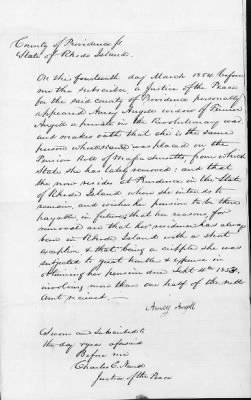 County of Providence ss
State of Rhode Island.
On the fourteenth day March 1854 before
me the subscriber, a Justice of the Peace
for the said County of Providence personally
appeared Amey Angell widow of
Angell a private in the Revolutionary war,
and makes oath that she is the same
person whose name was placed on the
Pension Roll of Massachusetts, from which
State she has lately removed; and that
she now resides at Providence in the State
of Rhode Island where she intends to
remain, and wishes her pension to be there
payable, in future, that her reasons for
removal are that her residence has always
been in Rhode Island with a short
exception & that being a cripple she was
subjected to great trouble & expense in
obtaining her pension due Sept 4th 1853.
involving more than one half of the nett
Amt received.
Amey Angell
Sworn and Subscribed to
the day & year aforesaid
Before me
Charles C.
Justice of the Peace